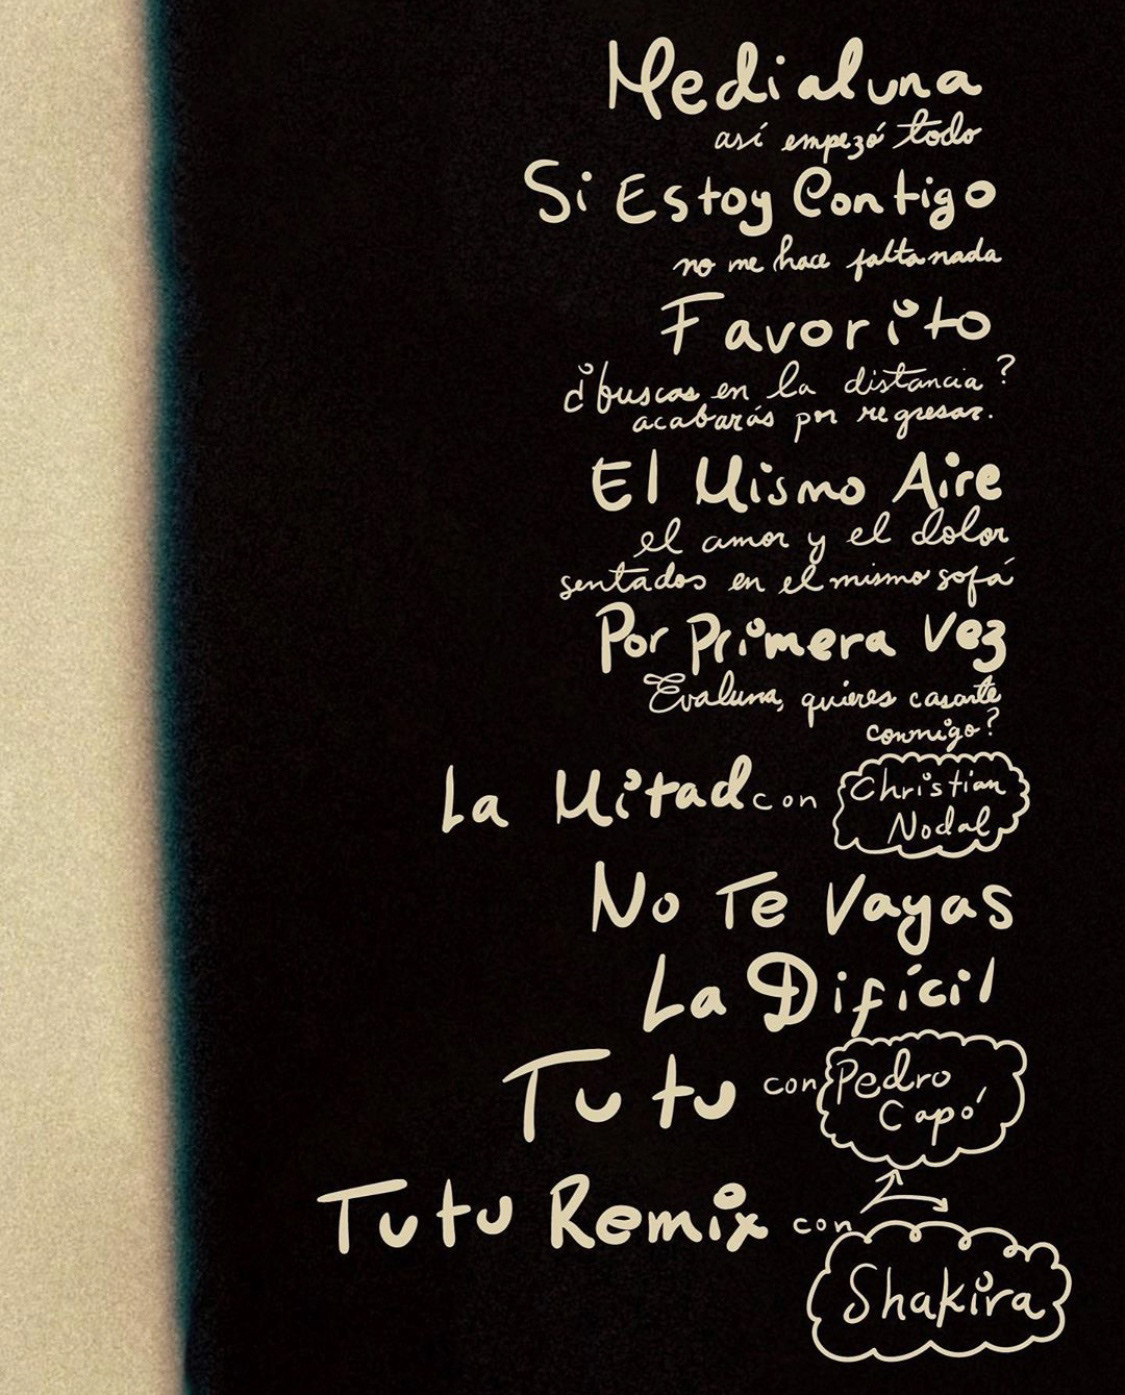 Medialuna
así empezó todo
Si Estoy Contigo
no me hace falta nada
Favorito
¿buscas en la distancia?
acabarás por regresar.
El Mismo Aire
el amor y el dolor
sentados en el mismo sofá
Por Primera Vez
Evaluna, quieres casarte
conmigo?
La Mitad con Christian
Nodal
No Te Vayas
La Difícil
Tutu con Pedro
Capó
Tutu Remix con
Shakira